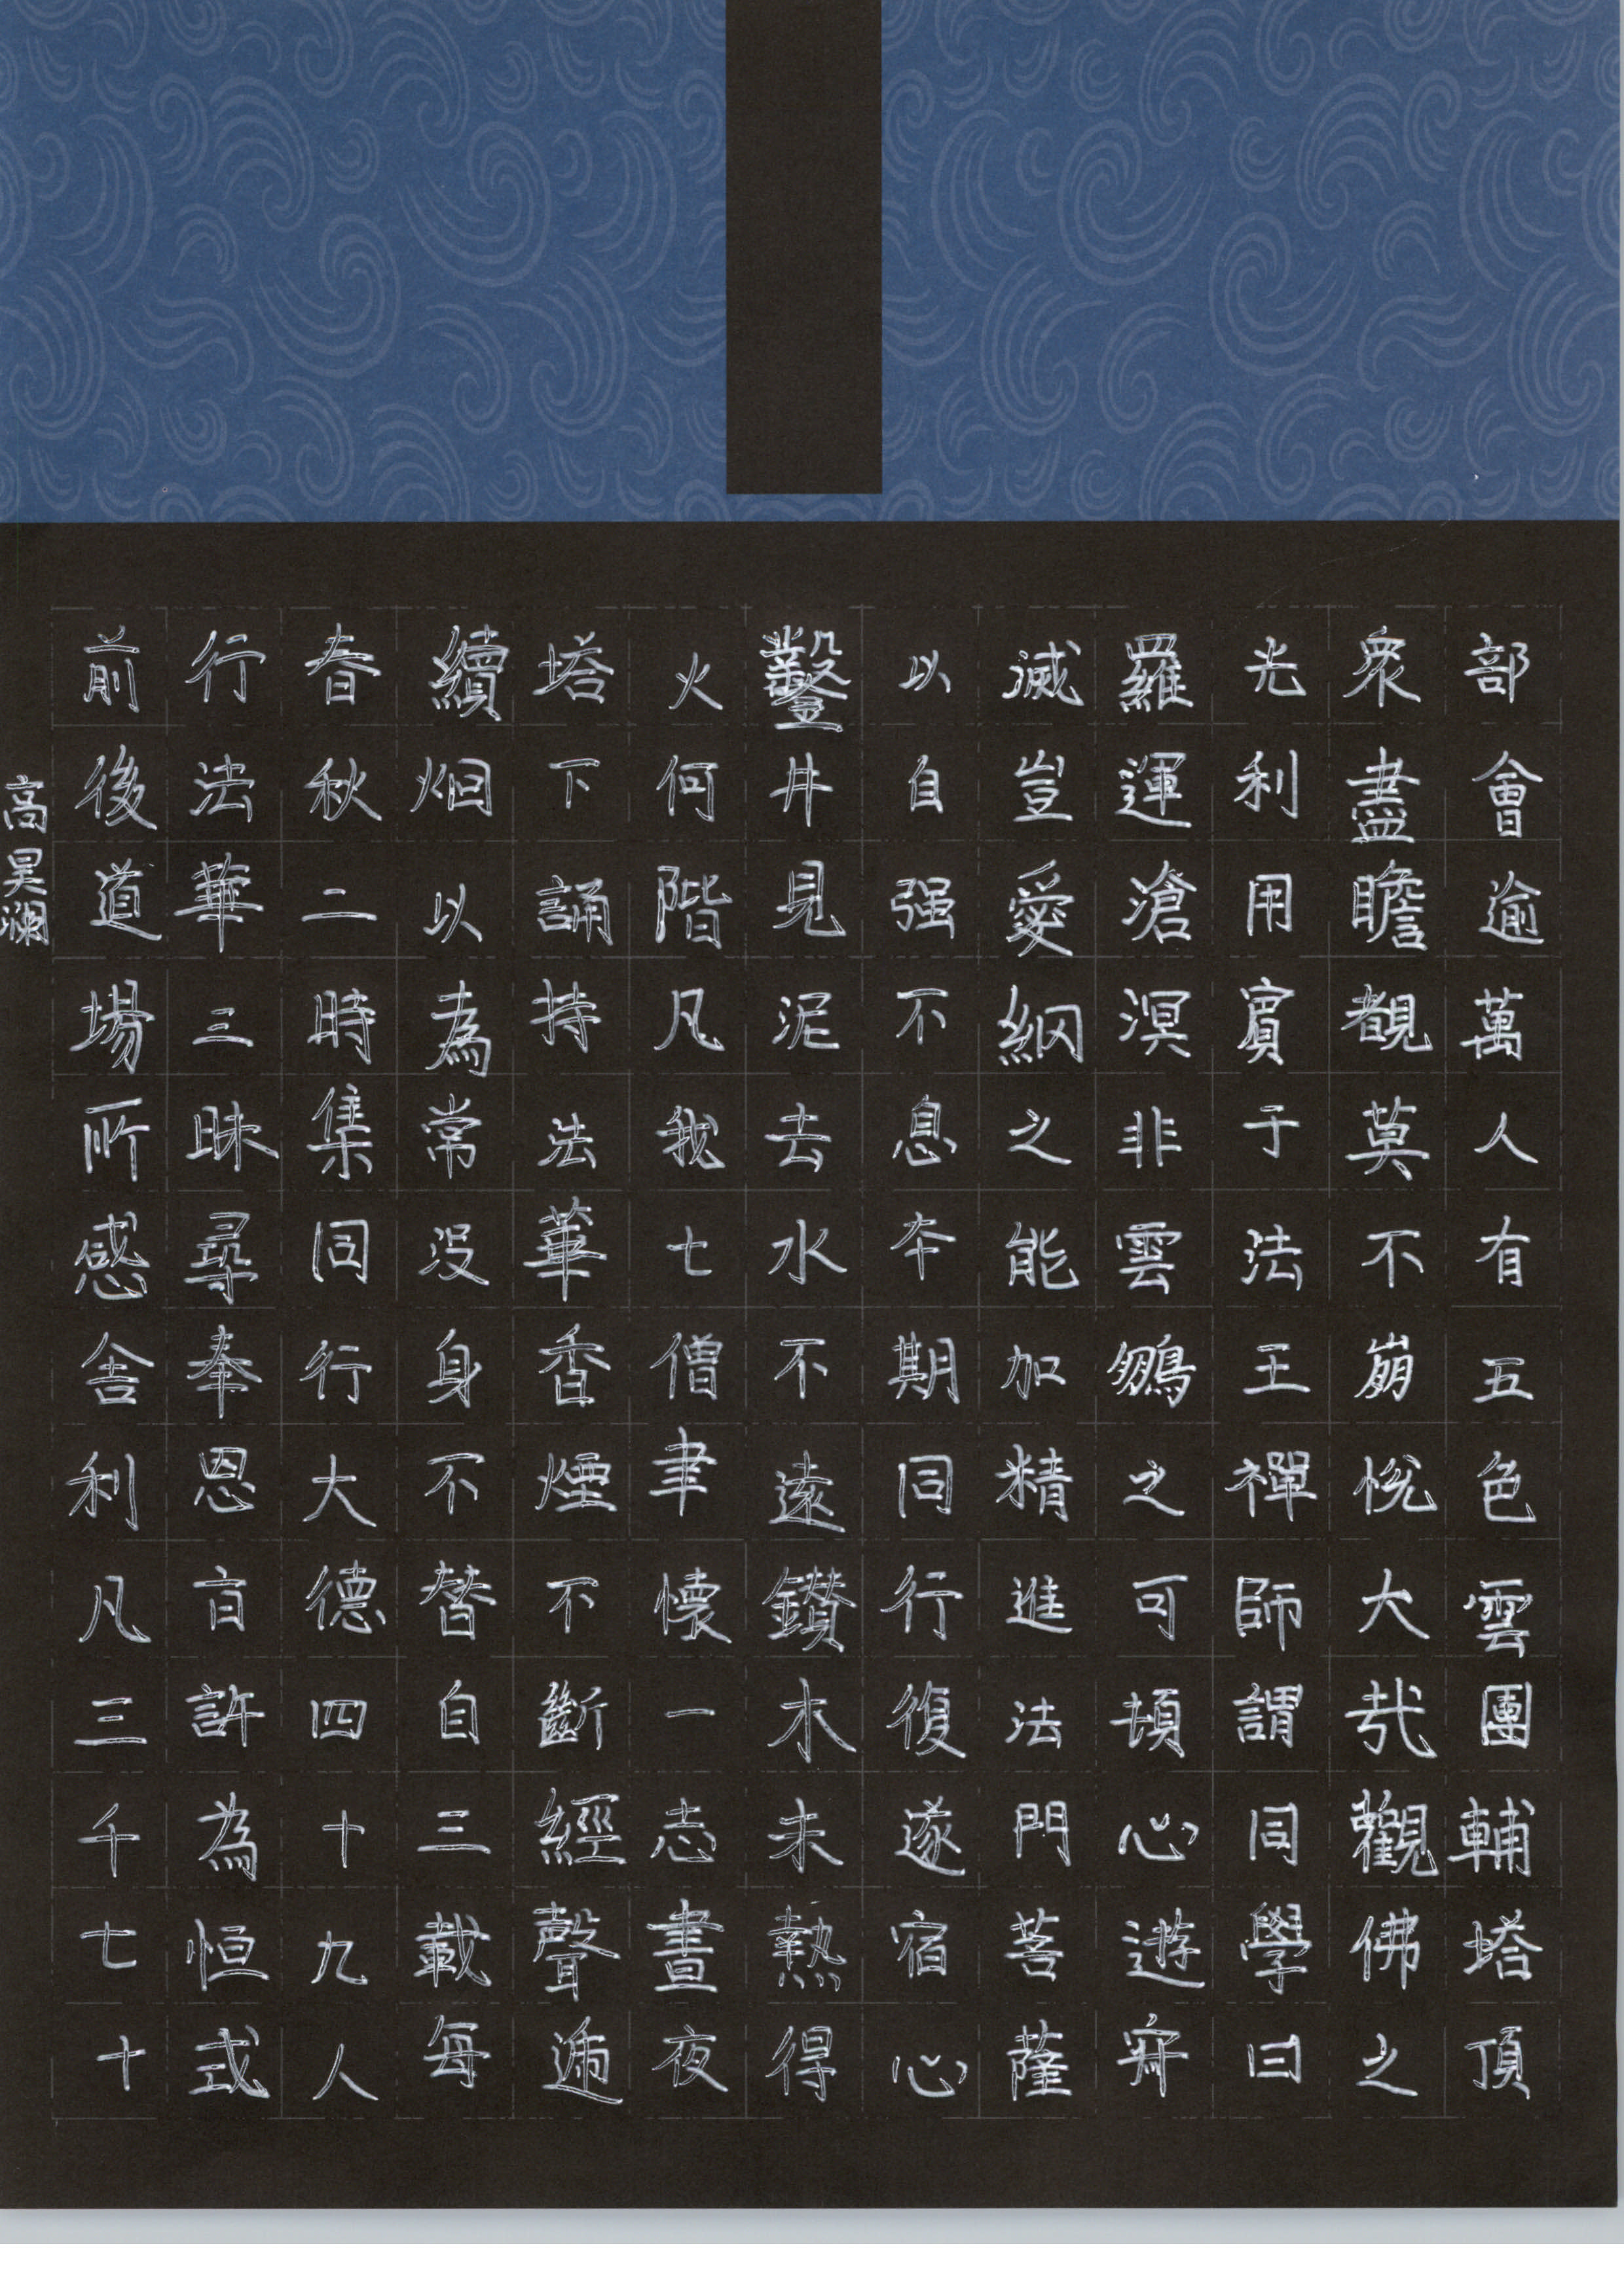 部會逾萬人有五色雲團輔塔頂
衆盡瞻覩莫不崩悅大哉觀佛之
光利用賓于法王禪師謂同學曰
羅運滄溟非雲鷚之可頓心遊寂
滅豈愛網之能加精進法門菩薩
以自强不息本期同行復遂宿心
鑿井見泥去水不遠鑽木未熱得
火何階凡我七僧聿懷一志晝夜
塔下誦持法華香煙不斷經聲遞
續炯以為常没身不替自三載每
春秋二時集同行大德四十九人
行法華三昧尋奉恩旨許為恒式
前後道場所感舍利凡三千七十
高昊瀾